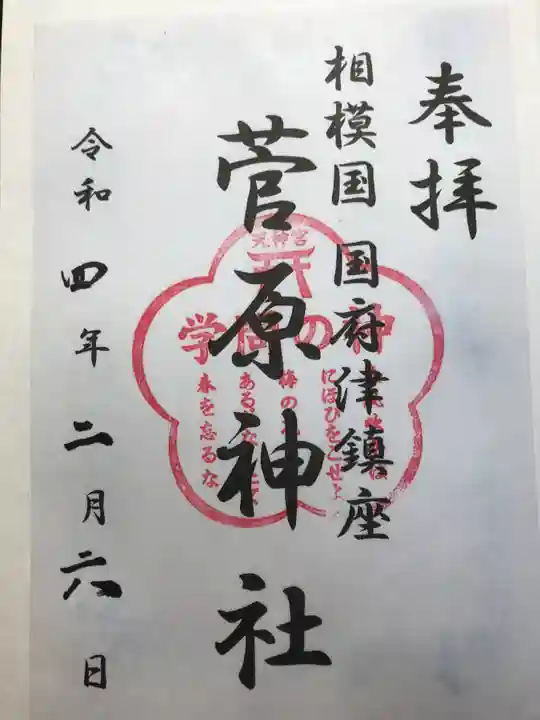 奉拝
相模国 国府津鎮座
菅原神社
令和四年二月六日
天神宮
学問の神
にほひをこせよ
梅の
ある
春を忘るな